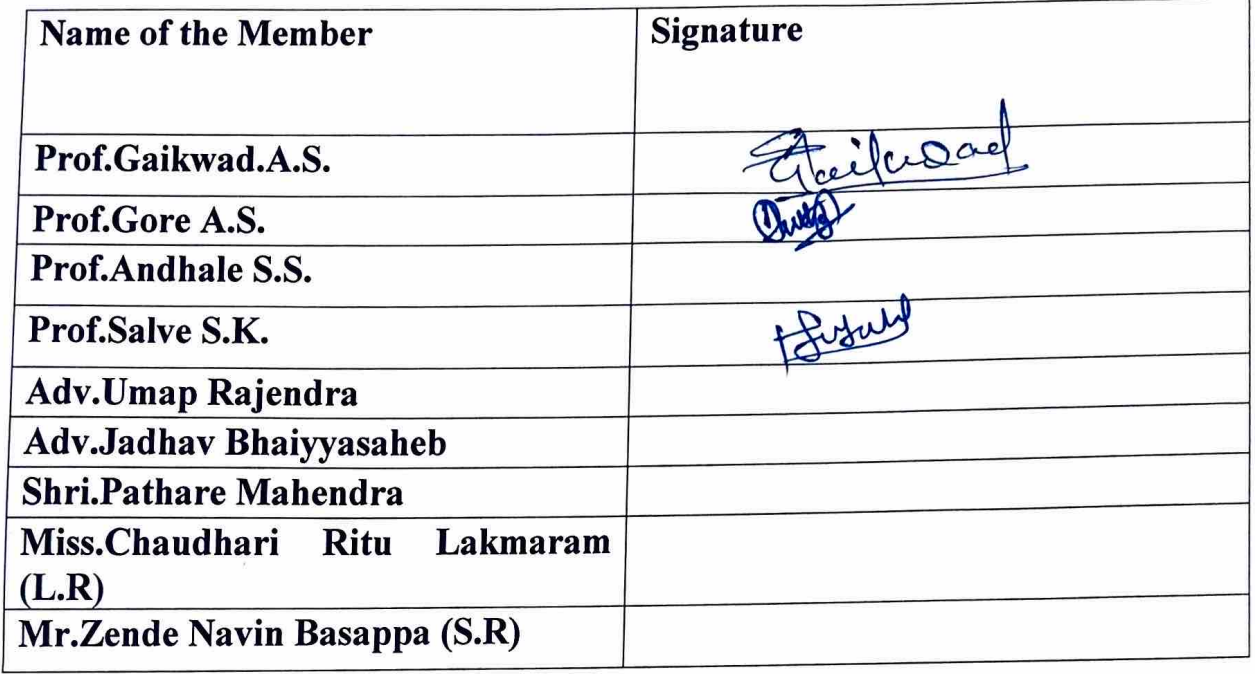 Name of the Member Signature
Prof.Gaikwad.A.S. Gaikwad
Prof.Gore A.S.
Prof.Andhale S.S.
Prof.Salve S.K.
Adv.Umap Rajendra
Adv.Jadhav Bhaiyyasaheb
Shri.Pathare Mahendra
Miss.Chaudhari Ritu Lakmaram
(L.R)
Mr.Zende Navin Basappa (S.R)